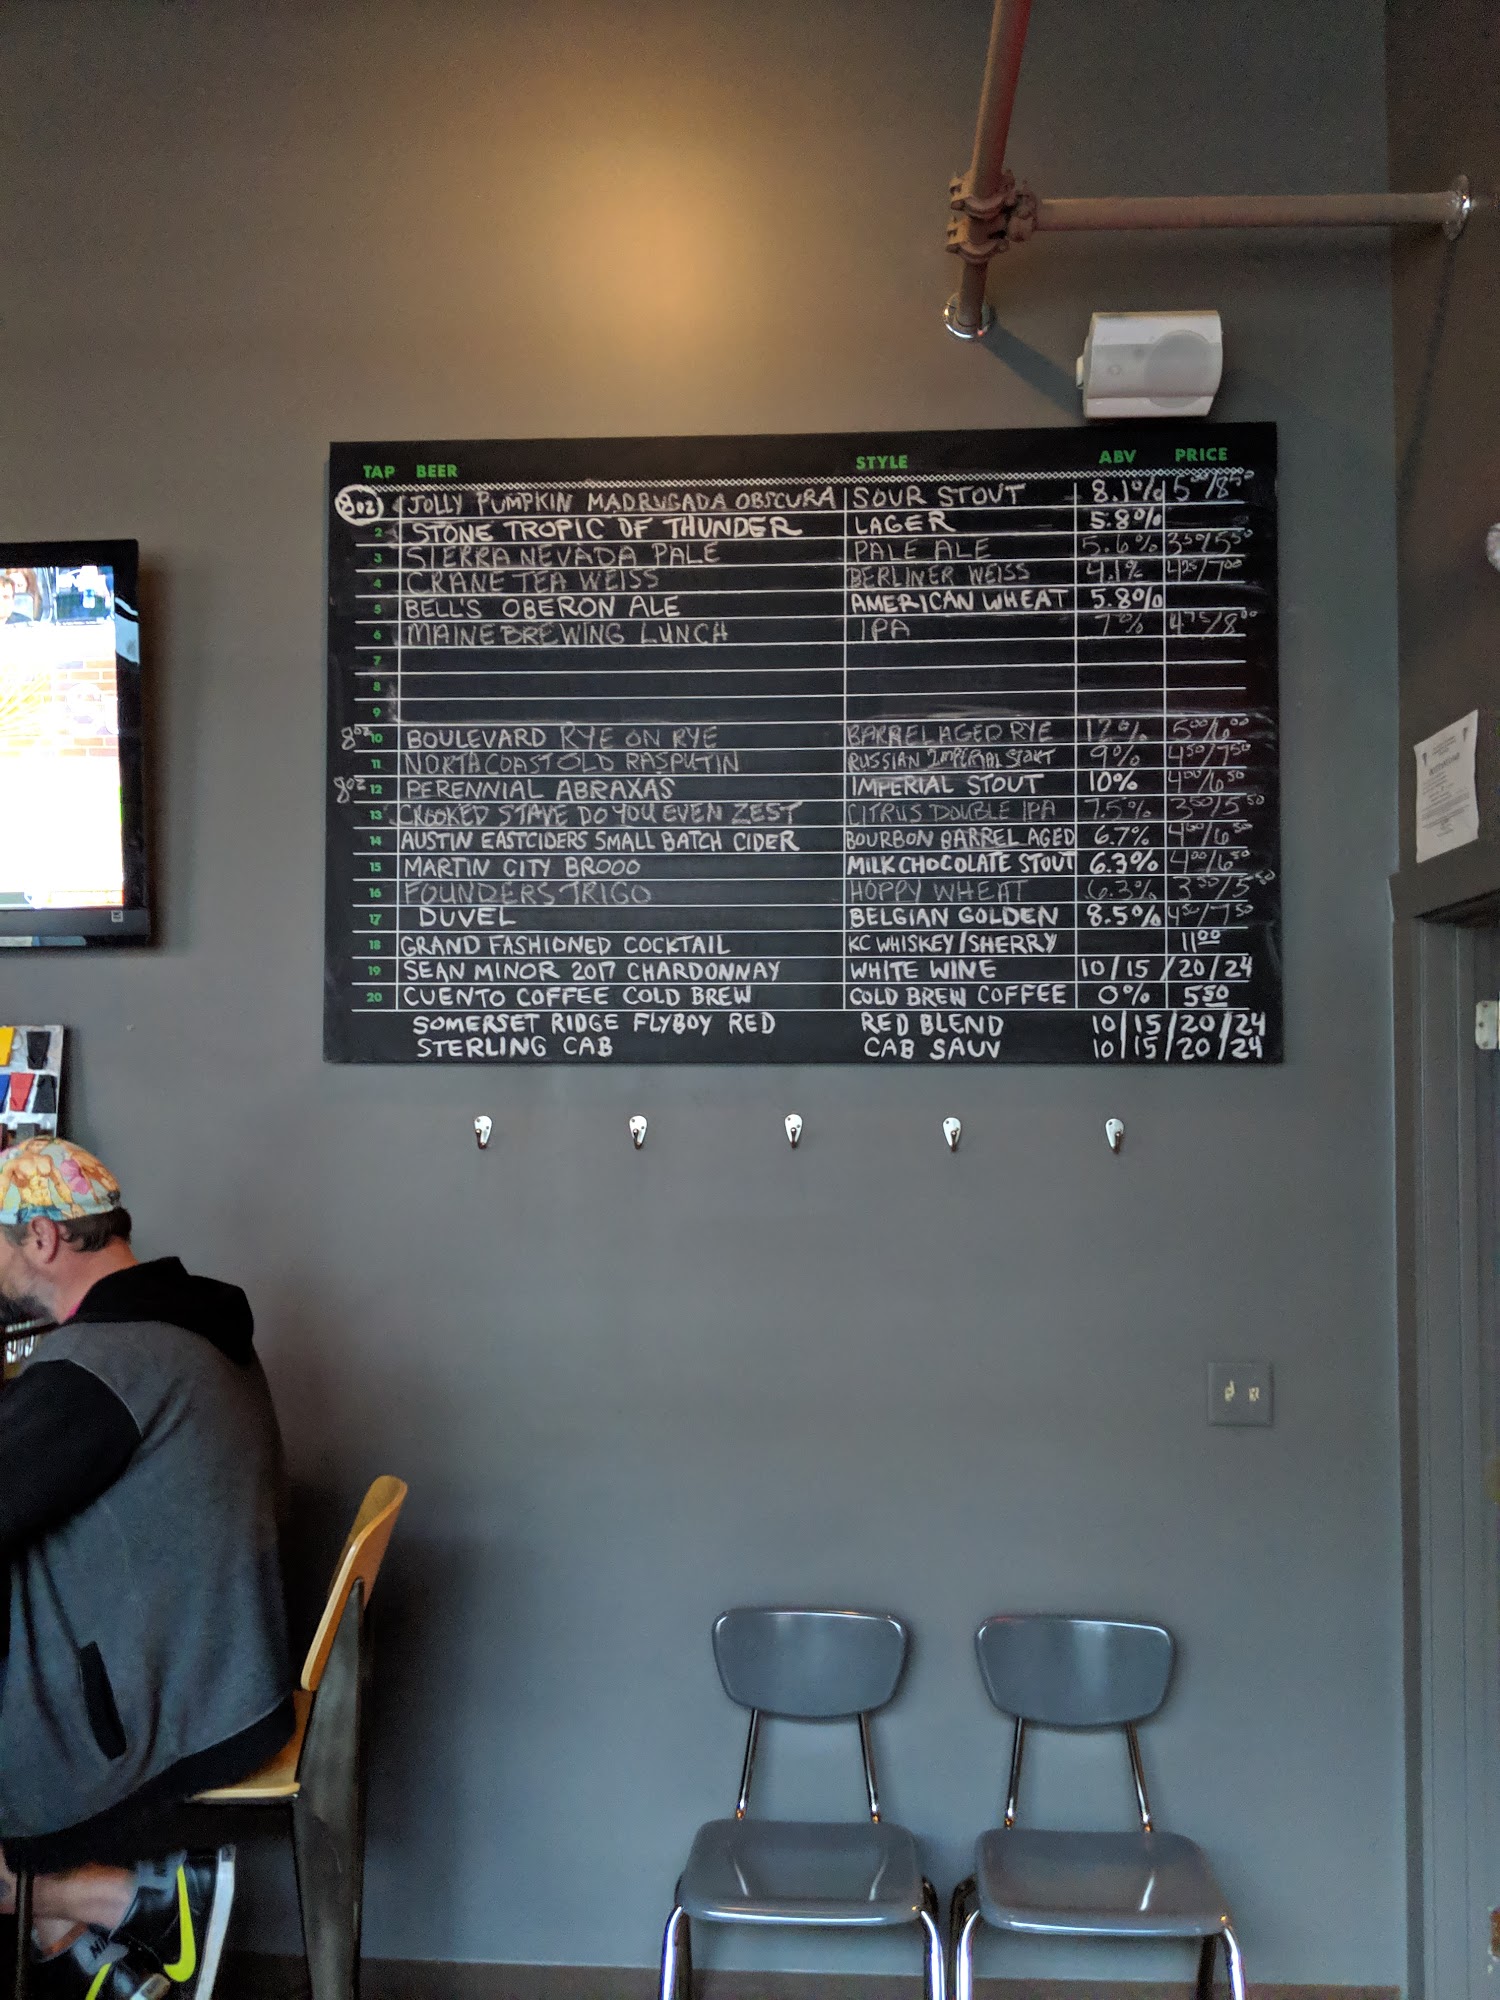 TAP BEER STYLE ABV PRICE
8oz JOLLY PUMPKIN MADRUGADA OBSCURA SOUR STOUT 8.1% 5⁰⁰/8⁵⁰
2 STONE TROPIC OF THUNDER LAGER 5.8%
3 SIERRA NEVADA PALE PALE ALE 5.6% 3⁵⁰/5⁵⁰
4 CRANE TEA WEISS BERLINER WEISS 4.1% 4²⁵/7⁰⁰
5 BELL'S OBERON ALE AMERICAN WHEAT 5.8%
6 MAINE BREWING LUNCH IPA 7% 4⁷⁵/8⁰⁰
7
8
9
8oz 10 BOULEVARD RYE ON RYE BARREL AGED RYE 12% 5⁰⁰/6⁰⁰
11 NORTH COAST OLD RASPUTIN RUSSIAN IMPERIAL STOUT 9% 4⁵⁰/7⁵⁰
8oz 12 PERENNIAL ABRAXAS IMPERIAL STOUT 10% 4⁰⁰/6⁵⁰
13 CROOKED STAVE DO YOU EVEN ZEST CITRUS DOUBLE IPA 7.5% 3⁵⁰/5⁵⁰
14 AUSTIN EASTCIDERS SMALL BATCH CIDER BOURBON BARREL AGED 6.7% 4⁰⁰/6⁵⁰
15 MARTIN CITY BROOO MILK CHOCOLATE STOUT 6.3% 4⁰⁰/6⁵⁰
16 FOUNDERS TRIGO HOPPY WHEAT 6.3% 3⁵⁰/5⁵⁰
17 DUVEL BELGIAN GOLDEN 8.5% 4⁵⁰/7⁵⁰
18 GRAND FASHIONED COCKTAIL KC WHISKEY/SHERRY 11⁰⁰
19 SEAN MINOR 2017 CHARDONNAY WHITE WINE 10/15/20/24
20 CUENTO COFFEE COLD BREW COLD BREW COFFEE 0% 5⁵⁰
SOMERSET RIDGE FLYBOY RED RED BLEND 10/15/20/24
STERLING CAB CAB SAUV 10/15/20/24